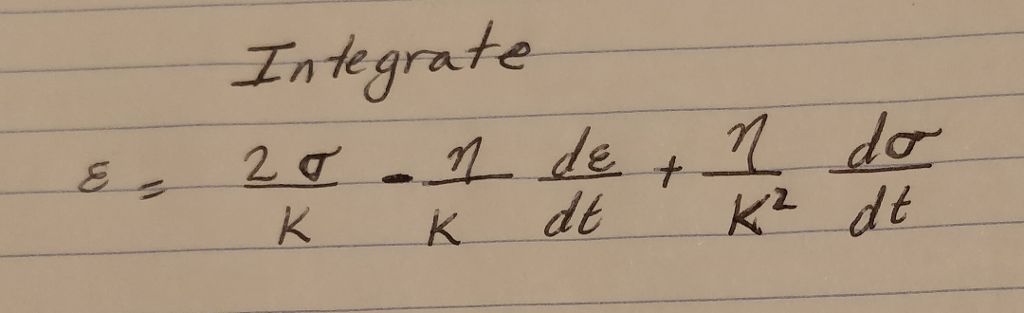 Integrate
ε = 2σ/K - η/K dε/dt + η/K² dσ/dt